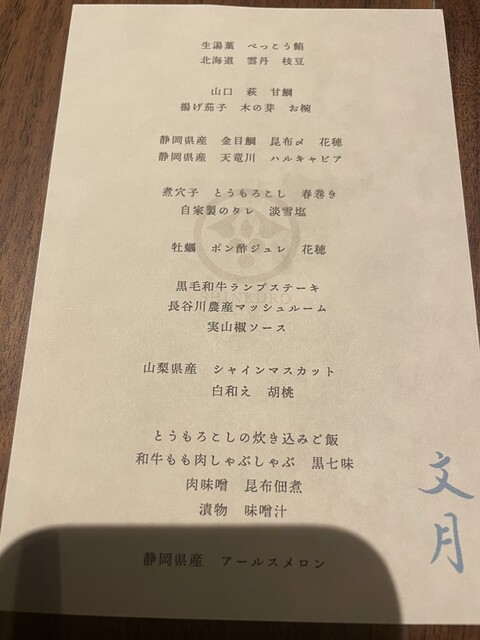 生湯葉 べっこう餡
北海道 雲丹 枝豆
山口 萩 甘鯛
揚げ茄子 木の芽 お椀
静岡県産 金目鯛 昆布〆 花穂
静岡県産 天竜川 ハルキャビア
煮穴子 とうもろこし 春巻き
自家製のタレ 淡雪塩
牡蠣 ポン酢ジュレ 花穂
黒毛和牛ランプステーキ
長谷川農産マッシュルーム
実山椒ソース
山梨県産 シャインマスカット
白和え 胡桃
とうもろこしの炊き込みご飯
和牛もも肉しゃぶしゃぶ 黒七味
肉味噌 昆布佃煮
漬物 味噌汁
静岡県産 アールスメロン
文月